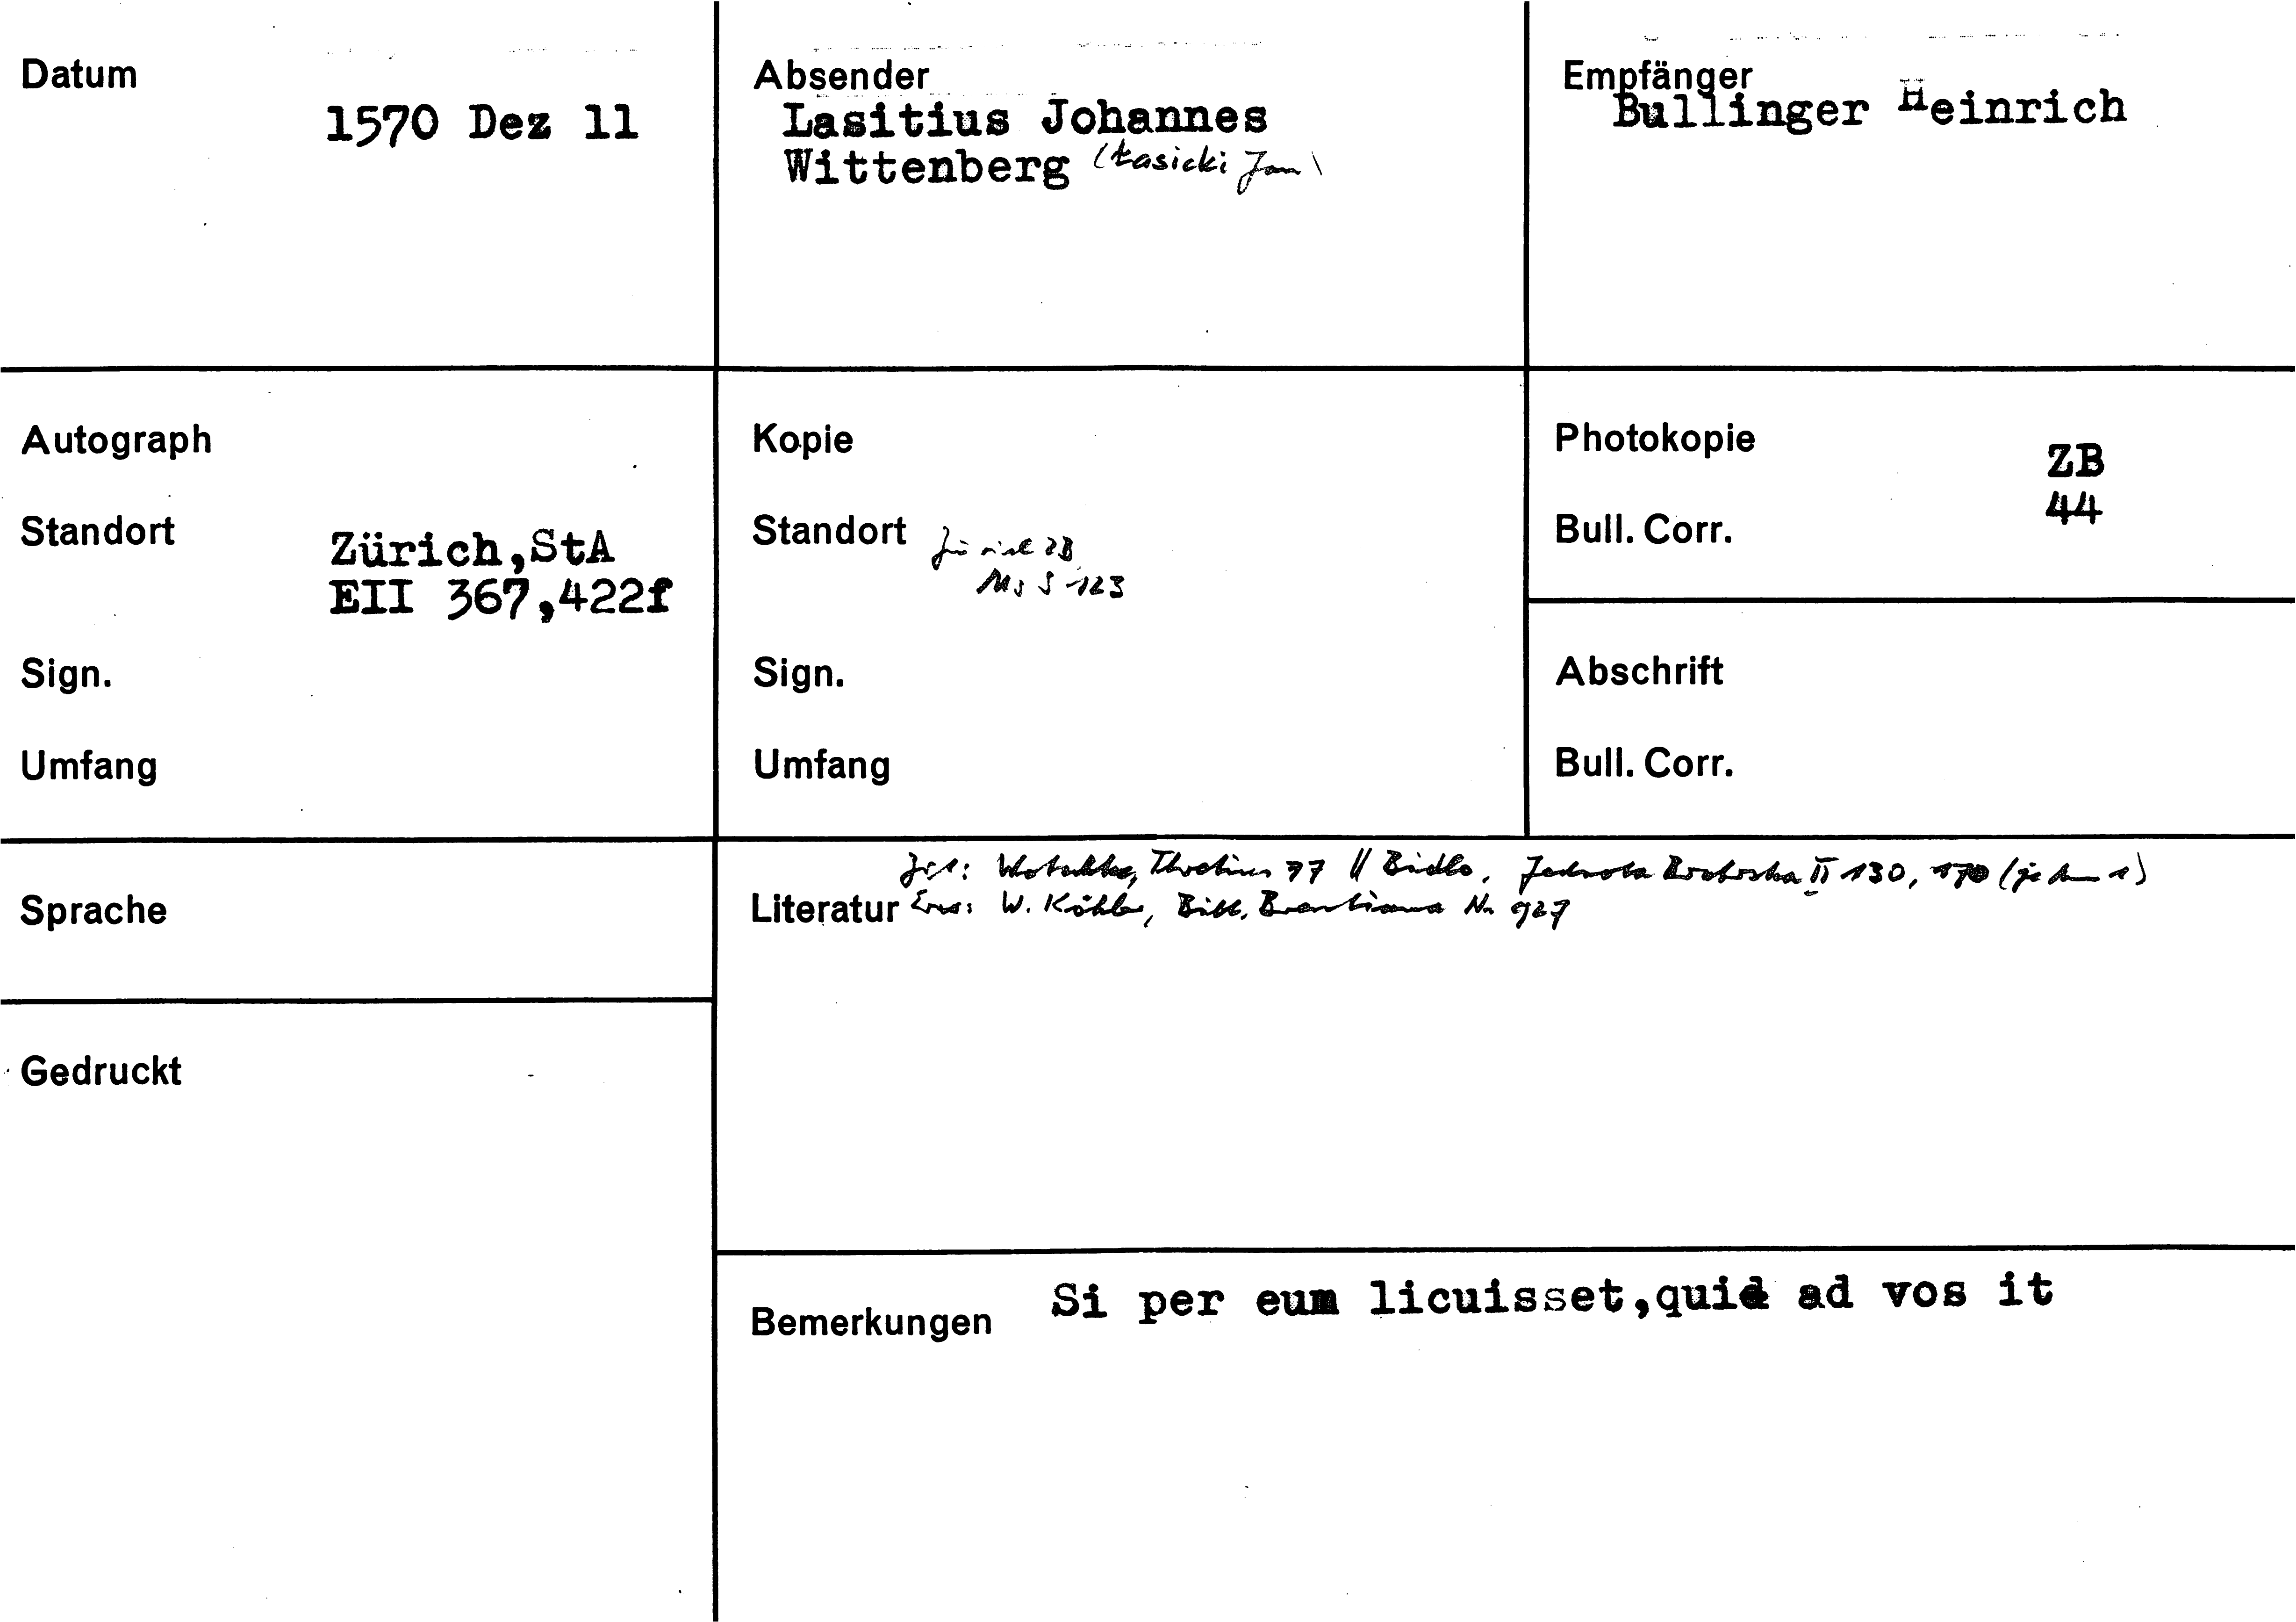 Datum
1570 Dez 11
Absender
Lasitius Johannes
Wittenberg (Łasicki Jan)
Empfänger
Bullinger Heinrich
Autograph
Standort
Zürich,StA
EII 367,422f
Sign.
Umfang
Kopie
Standort
ZB
Ms S 123
Sign.
Umfang
Photokopie
ZB
Bull. Corr.
44
Abschrift
Bull. Corr.
Sprache
Zit: Wotschke, Thretius 77 // Bidlo, Jednota Bratrska II 130, 170
Literatur Erw: W. Köhler, Bibl. Brentiana Nr 927
Gedruckt
Bemerkungen
Si per eum licuisset,qui ad vos it